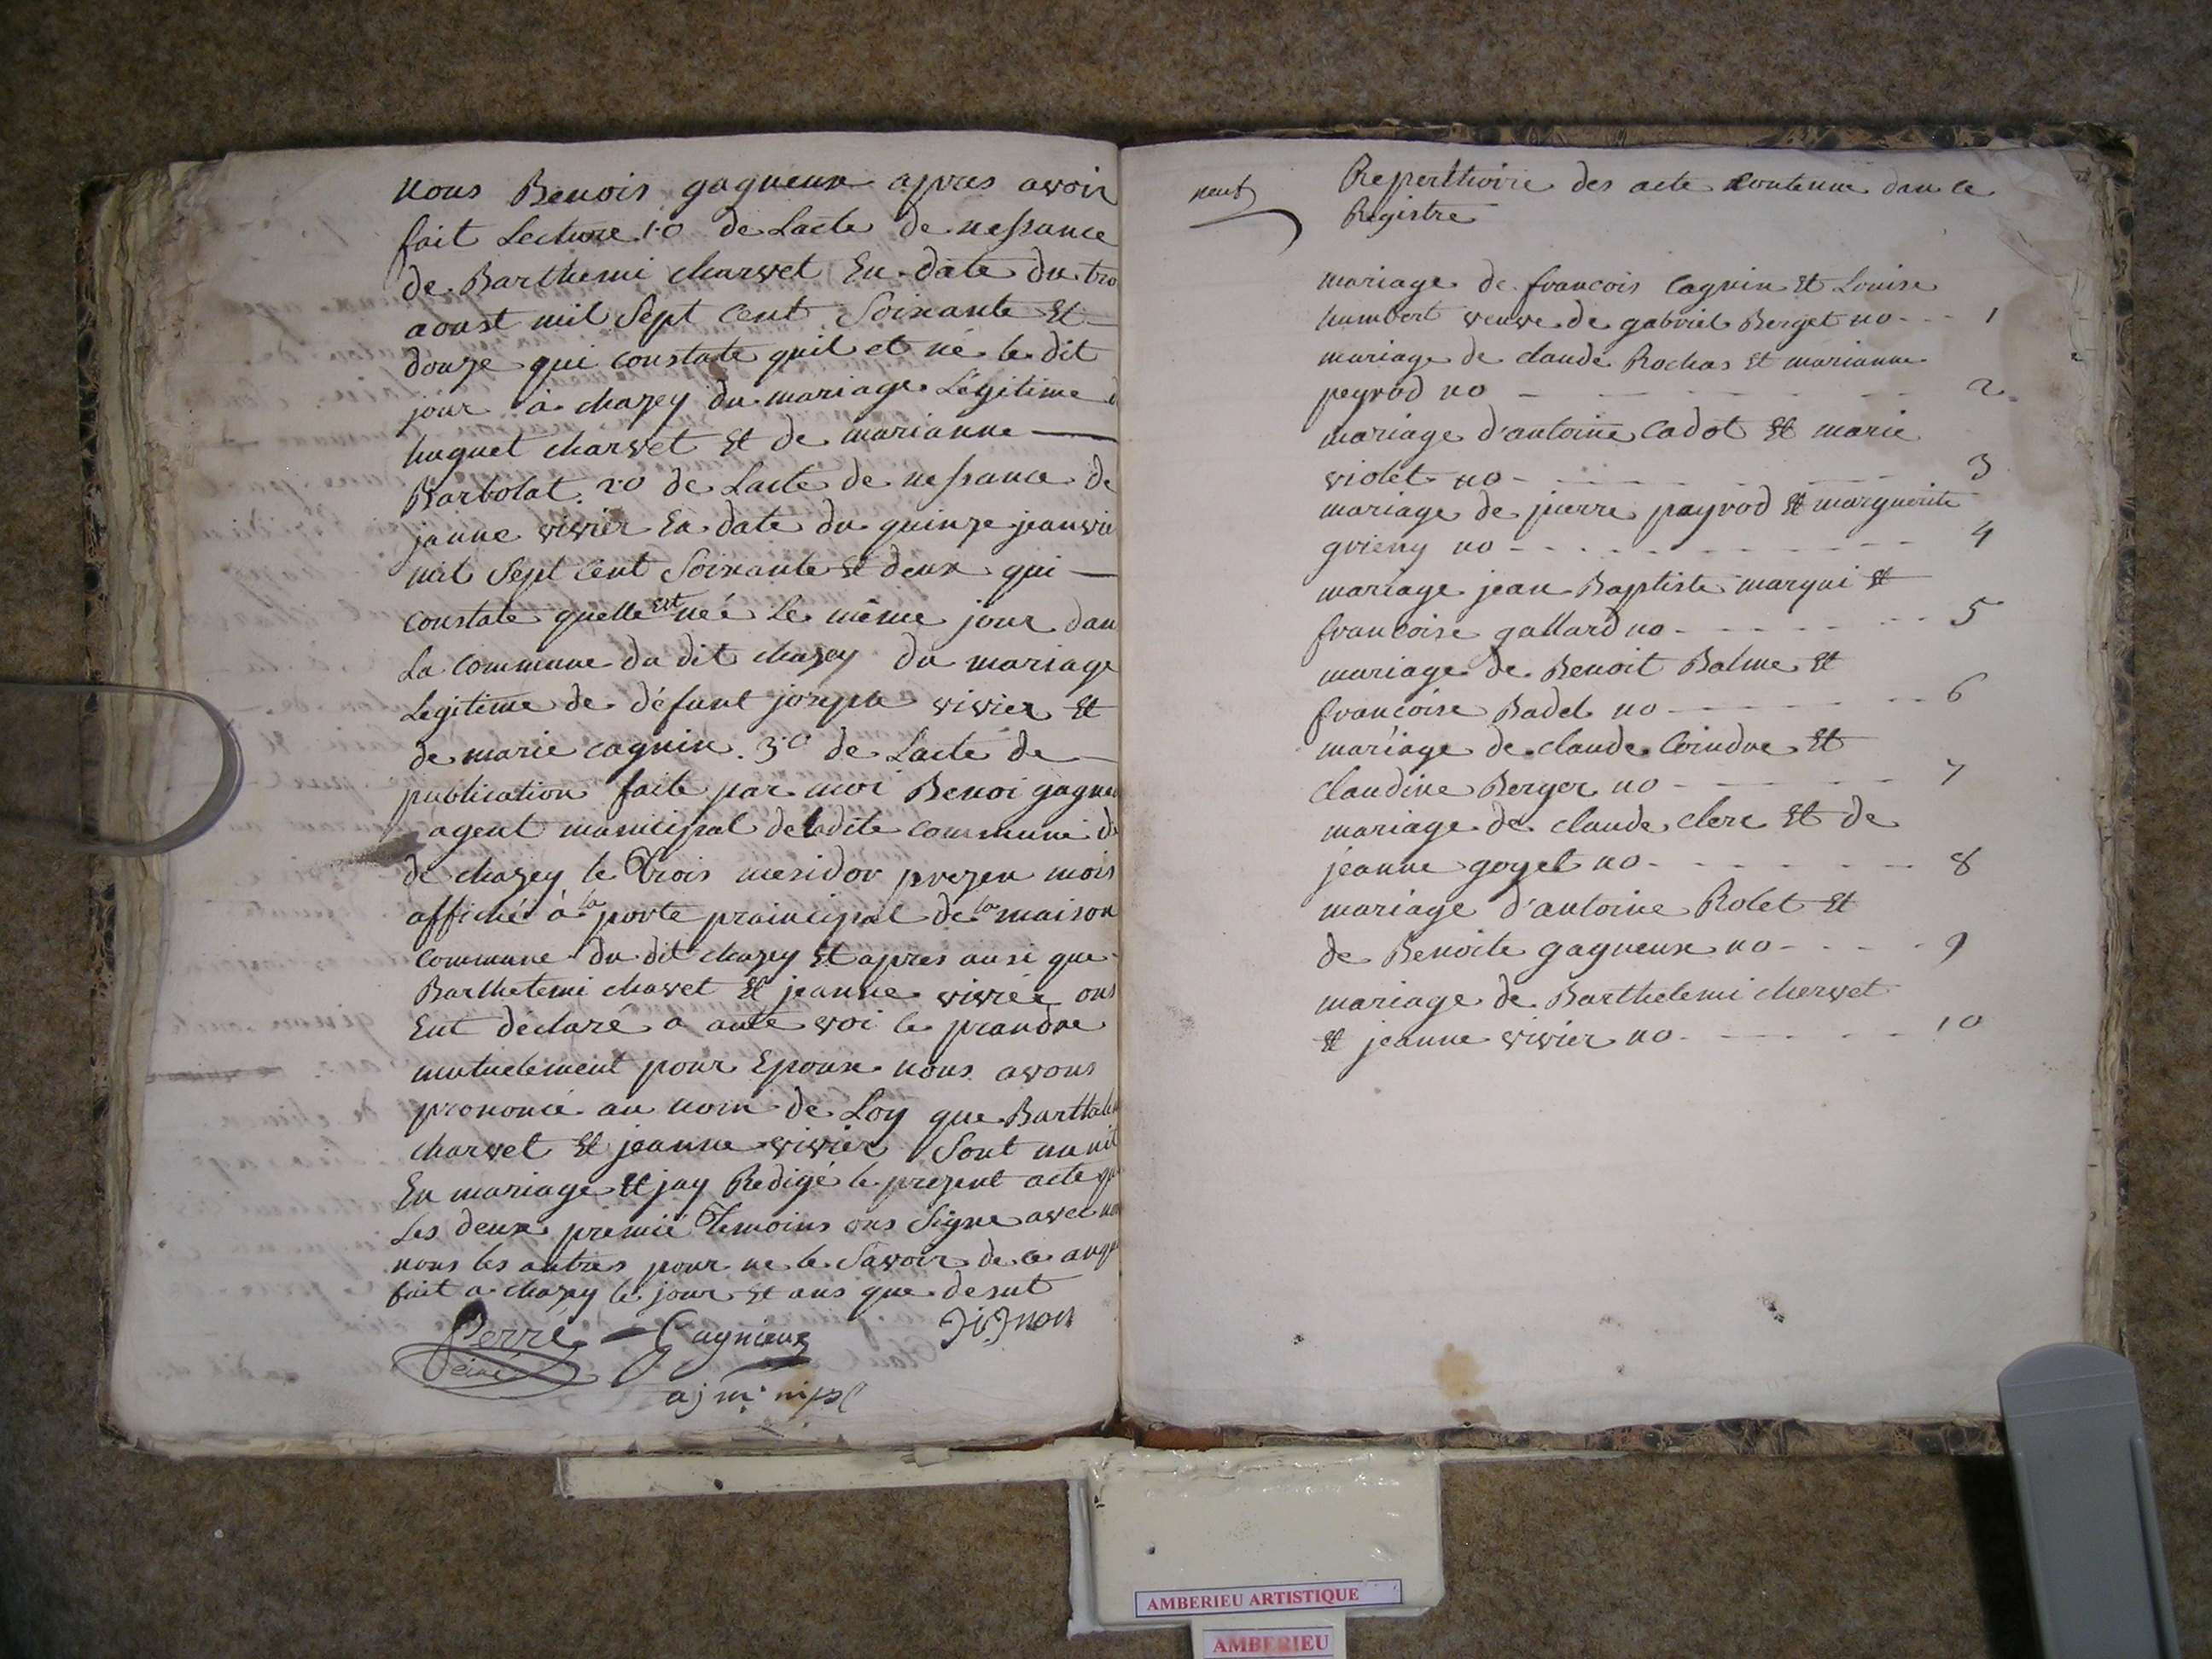 nous Benois gagneux apres avoir
fait Lecture 1.o de Lacte de nessance
de Barthemi charvet En date du tro
aoust mil Sept cent Soixante Et
douze qui constate quil et né le dit
jour à chazey du mariage Légitime d
huguet charvet Et de marianne
Barbolat 2.o de Lacte de nessance de
jeanne vivier En date du quinze jeanvie
mil Sept cent Soixante et deux qui
constate quelle est née Le même jour dan
La commune du dit chazey du mariage
Legitime de défunt joseph vivier Et
de marie cagnin 3.o de Lacte de
publication faite par moi Benoi gagneu
agent municipal deladite commune de
de chazey le Trois mesidor prezen mois
affiché à la porte praincipal de la maison
commune du dit chazey Et apres ausi que
Barthelemi chavet Et jeanne vivier ons
Eut déclaré a aute voi le prandre
mutuelement pour Epoux nous avons
prononcé au nom de Loy que Barthele
charvet Et jeanne vivier Sont unnit
En mariage Et jay Redigé le prezent acte que
Les deux premié Temoins ons Signe avec
nous les autres pour ne le Savoir de ce
fait a chazey le jour Et ans que desut
Perré Gagnieux Dignon
ainé
aj m. nipsl
neuf
Reperthoire des acte contenue dan ce
Registre
mariage de francois Cagnin Et Louise
humbert veuve de gabriel Berget no - - - 1
mariage de claude Rochas Et marianne
peyrod no - - - - - 2
mariage d'antoine Cadot Et marie
violet no - - - - - 3
mariage de pierre payrod Et marguerite
grieny no - - - - - 4
mariage jean Baptiste marqui Et
francoise gallard no - - - - - 5
mariage de Benoit Balme Et
francoise Badel no - - - - - 6
mariage de claude Coindre Et
Claudine Berger no - - - - - 7
mariage de claude clerc Et de
jeanne goyet no - - - - - 8
mariage d'antoine Rolet Et
de Benoite gagneux no - - - - 9
mariage de Barthelemi chervet
Et jeanne vivier no - - - - - 10
AMBERIEU ARTISTIQUE
AMBERIEU